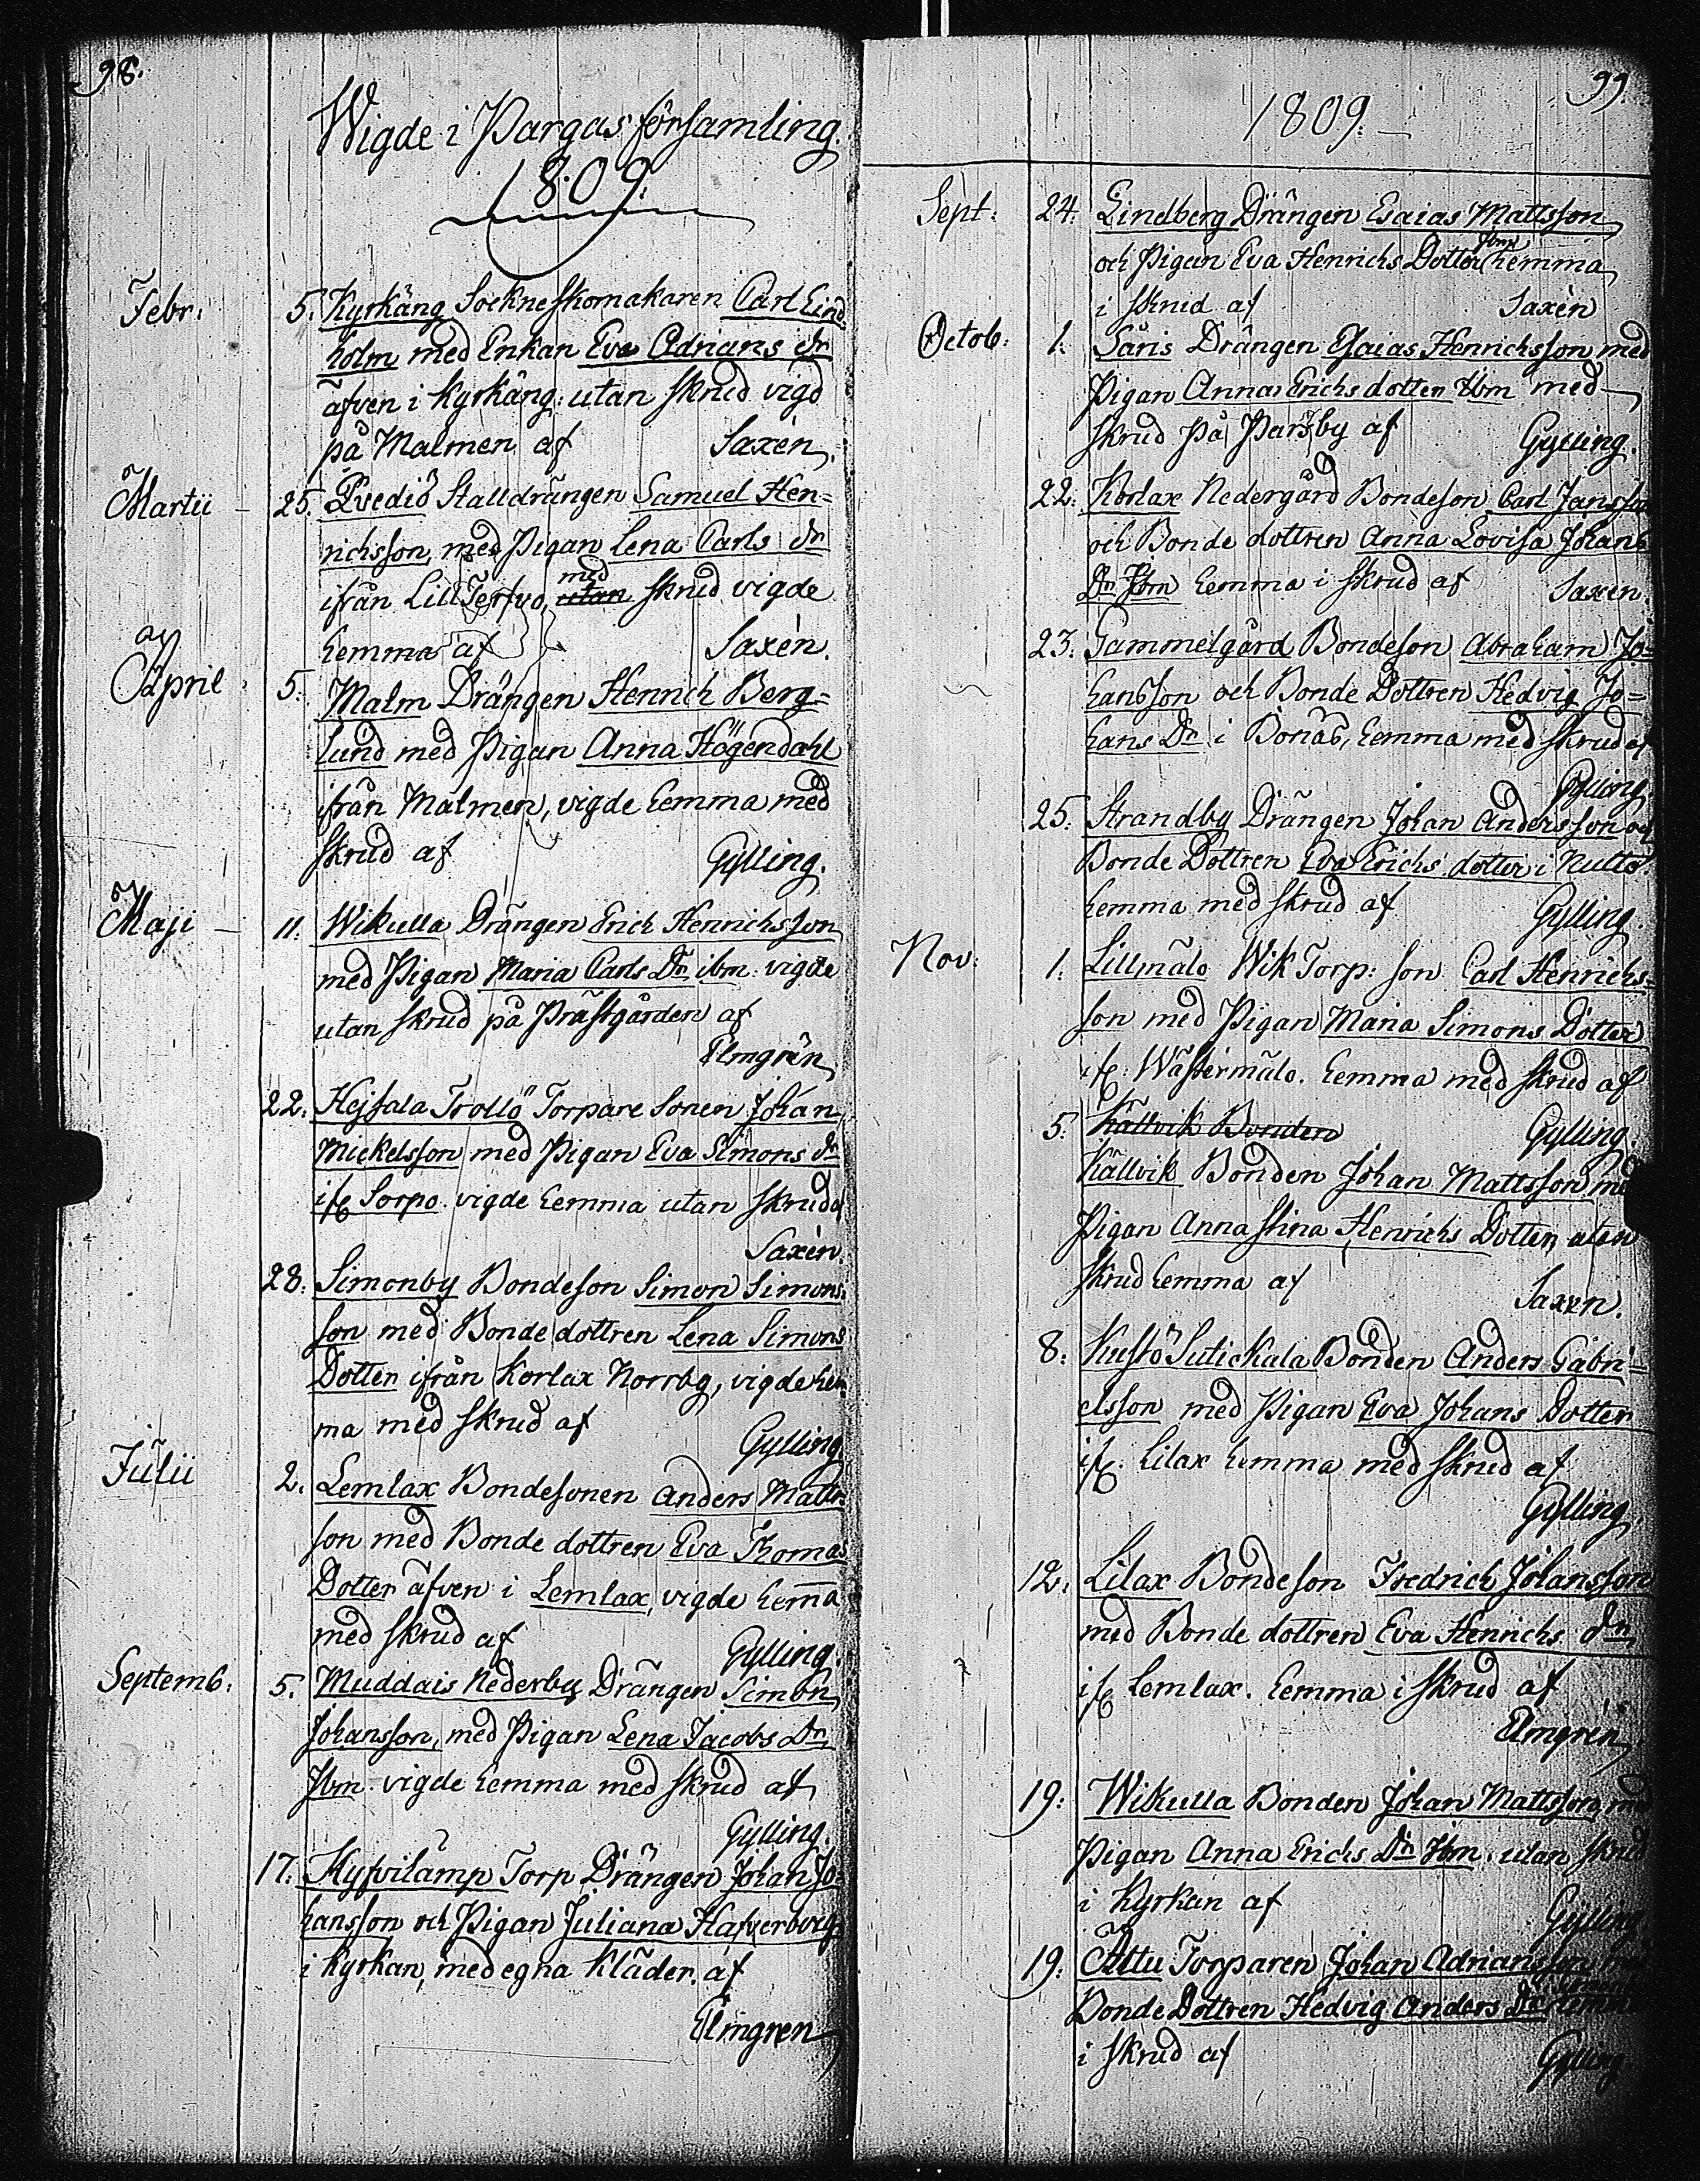 98.
Wigde i Pargas församling.
1809.
Febr. 5. Kyrkäng Sockneskomakaren Carl Lind=
holm med Enkan Eva Adrians dr
äfven i Kyrkäng: utan skrud vigd
på Malmen af Saxén.
Martii 25. Qvediö Stalldrängen Samuel Hen=
richsson, med Pigan Lena Carls dr
ifrån Lill Tervo, utan med skrud vigde
hemma af Saxén.
April 5. Malm Drängen Henrich Berg=
lund med Pigan Anna Högendahl
ifrån Malmen, vigde hemma med
skrud af Gylling.
Maji 11. Wikulla Drängen Erich Henrichsson
med Pigan Maria Carls Dr. ibm: vigde
utan skrud på Prästgården af
Elmgrén
22. Hejsala Trollö Torpare Sonen Johan
Mickelsson med Pigan Eva Simons dr
ifr Sorpo. vigde hemma utan skrud af
Saxén
28. Simonby Bondeson Simon Simons=
son med Bonde dottren Lena Simons
Dotter ifrån Korlax Norrby, vigde hem
ma med skrud af Gylling
Julii 2. Lemlax Bondesonen Anders Matts
son med Bonde dottren Eva Thomas
Dotter äfven i Lemlax, vigde hem̄a
med skrud af Gylling.
Septemb. 5. Muddais Nederby Drängen Simon
Johansson, med Pigan Lena Jacobs Dr
Ibm. vigde hemma med skrud af
Gylling.
17. Kyfvilamp Torp Drängen Johan Jo=
hansson och Pigan Juliana Hafverberg
i Kyrkan, med egna Kläder. af
Elmgren
99.
1809.
Sept. 24. Lindberg Drängen Esaias Mattsson
och Pigan Eva Henrichs Dotter Ibm hemma
i skrud af Saxén
Octob: 1. Såris Drängen Esaias Henrichsson med
Pigan Anna Erichsdotter Ibm med
skrud på Parsby af Gylling.
22. Korlax Nedergård Bondeson Carl Jansson
och Bonde dottren Anna Lovisa Johans
Dr. Ibm hemma i skrud af Saxén.
23. Gammelgård Bondeson Abraham Jo=
hansson och Bonde Dottren Hedvig Jo=
hans Dr. i Bonäs, hemma med skrud af
Gylling.
25. Strandby Drängen Johan Andersson och
Bonde Dottren Eva Erichs dotter i Nulto
hemma med skrud af Gylling.
Nov: 1. Lillmälo Wik Torp: son Carl Henrichs=
son med Pigan Maria Simons Dotter
ifr: Wästermälo. hemma med skrud af
Gylling.
5. Källvik Bonden
Källvik Bonden Johan Mattsson med
Pigan Anna Stina Henrichs Dotter, utan
skrud hemma af Saxén.
8. Kustö Sutickala Bonden Anders Gabri=
elsson med Pigan Eva Johans Dotter
ifr: Lilax hemma med skrud af
Gylling.
12. Lilax Bondeson Fredrich Johansson
med Bonde dottren Eva Henrichs dr
ifr Lemlax. hemma i skrud af
Elmgrén
19. Wikulla Bonden Johan Mattsson med
Pigan Anna Erichs Dr. Ibm. utan skrud
i Kyrkan af Gylling
19. Attu Torparen Johan Adriansson med
Bonde Dottren Hedvig Anders Dr hemma
i skrud af Gylling